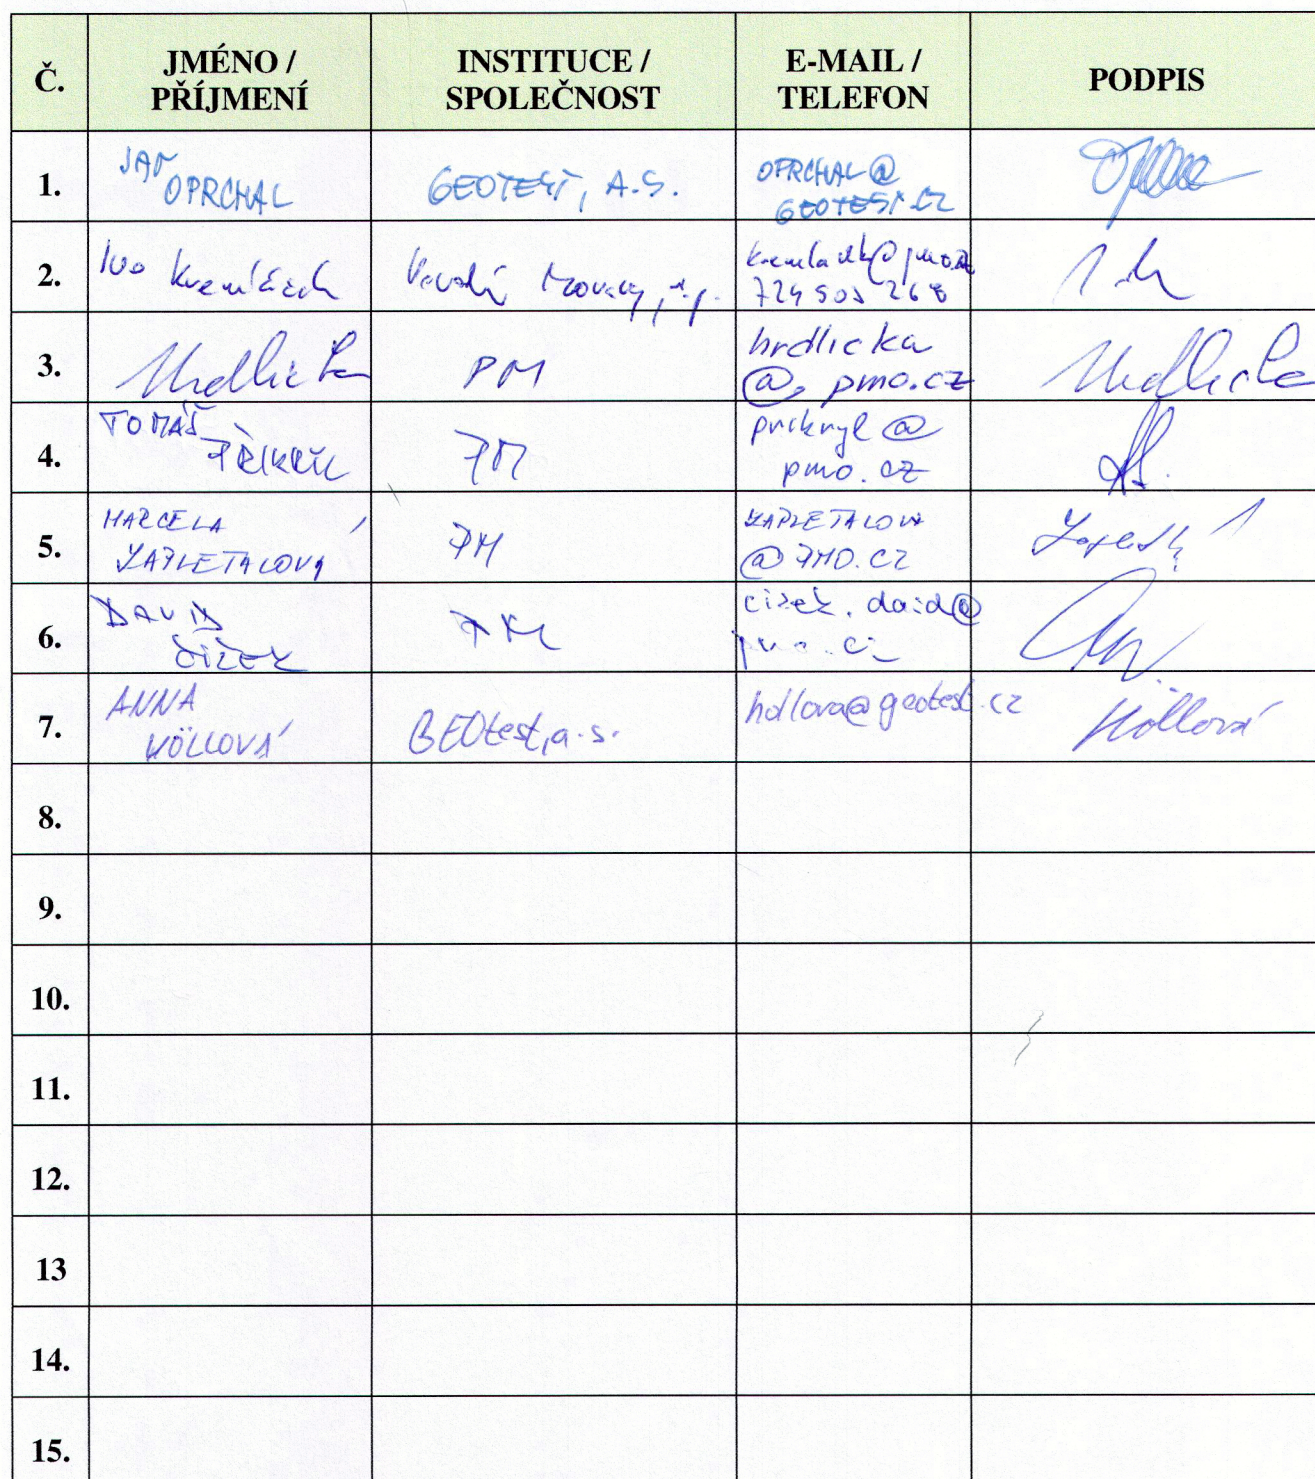 Č.
JMÉNO /
PŘÍJMENÍ
INSTITUCE /
SPOLEČNOST
E-MAIL /
TELEFON
PODPIS
1.
JAN
OPRCHAL
GEOTEST, A.S.
OPRCHAL@
GEOTEST.CZ
2.
Ivo
Moravy, s.p.
3.
Hrdlička
PM
hrdlicka
@ pmo.cz
Hrdlicka
4.
TOMÁŠ
PŘIKRYL
PM
prikryl @
pmo.cz
5.
MARCELA
ZAPLETALOVÁ
PM
ZAPLETALOVA
@PMO.CZ
6.
DAVID
ČÍŽEK
PM
7.
ANNA
HÖLLOVÁ
GEOtest, a.s.
hollova@geotest.cz
Höllová
8.
9.
10.
11.
12.
13
14.
15.